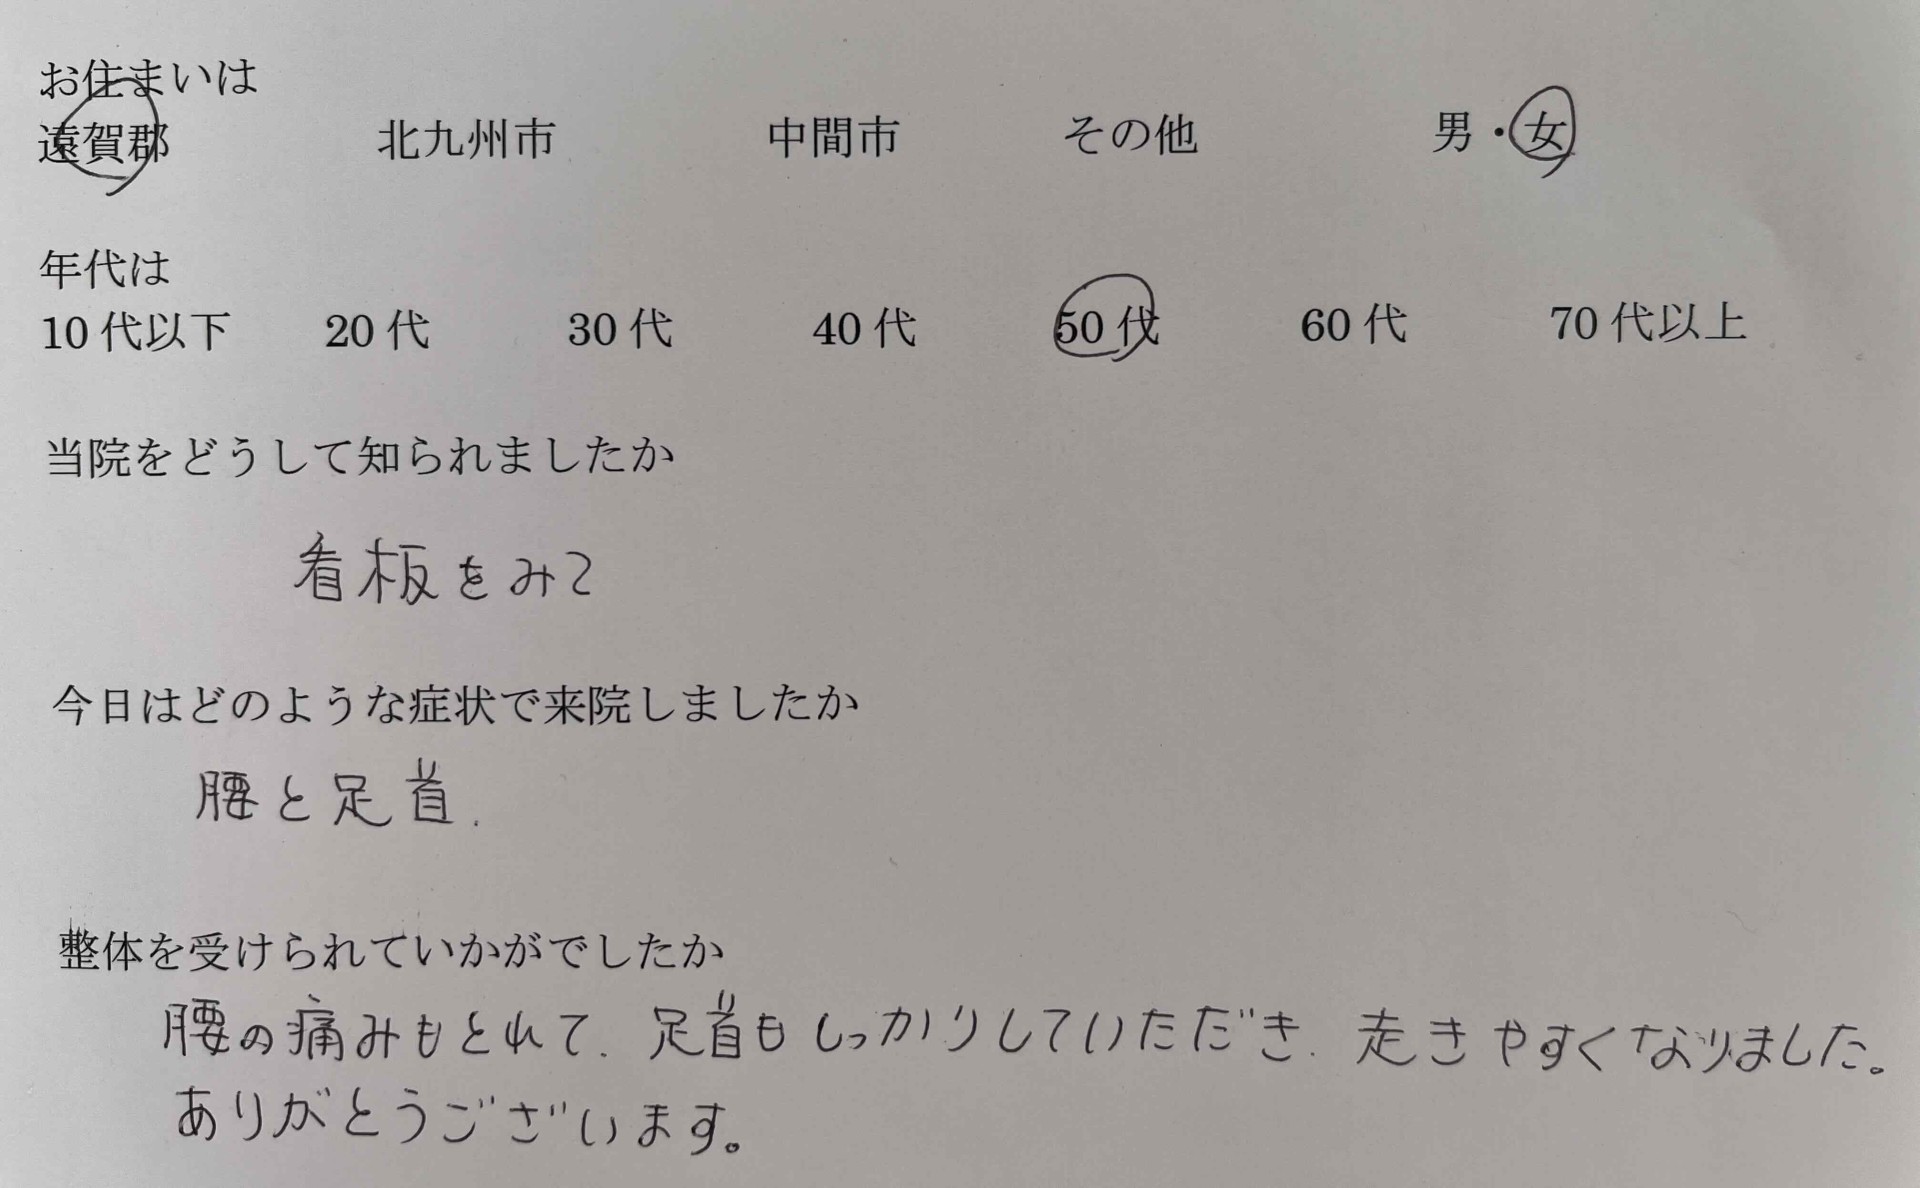 お住まいは
遠賀郡 北九州市 中間市 その他 男・女
年代は
10代以下 20代 30代 40代 50代 60代 70代以上
当院をどうして知られましたか
看板をみて
今日はどのような症状で来院しましたか
腰と足首.
整体を受けられていかがでしたか
腰の痛みもとれて. 足首もしっかりしていただき. 走きやすくなりました。
ありがとうございます。